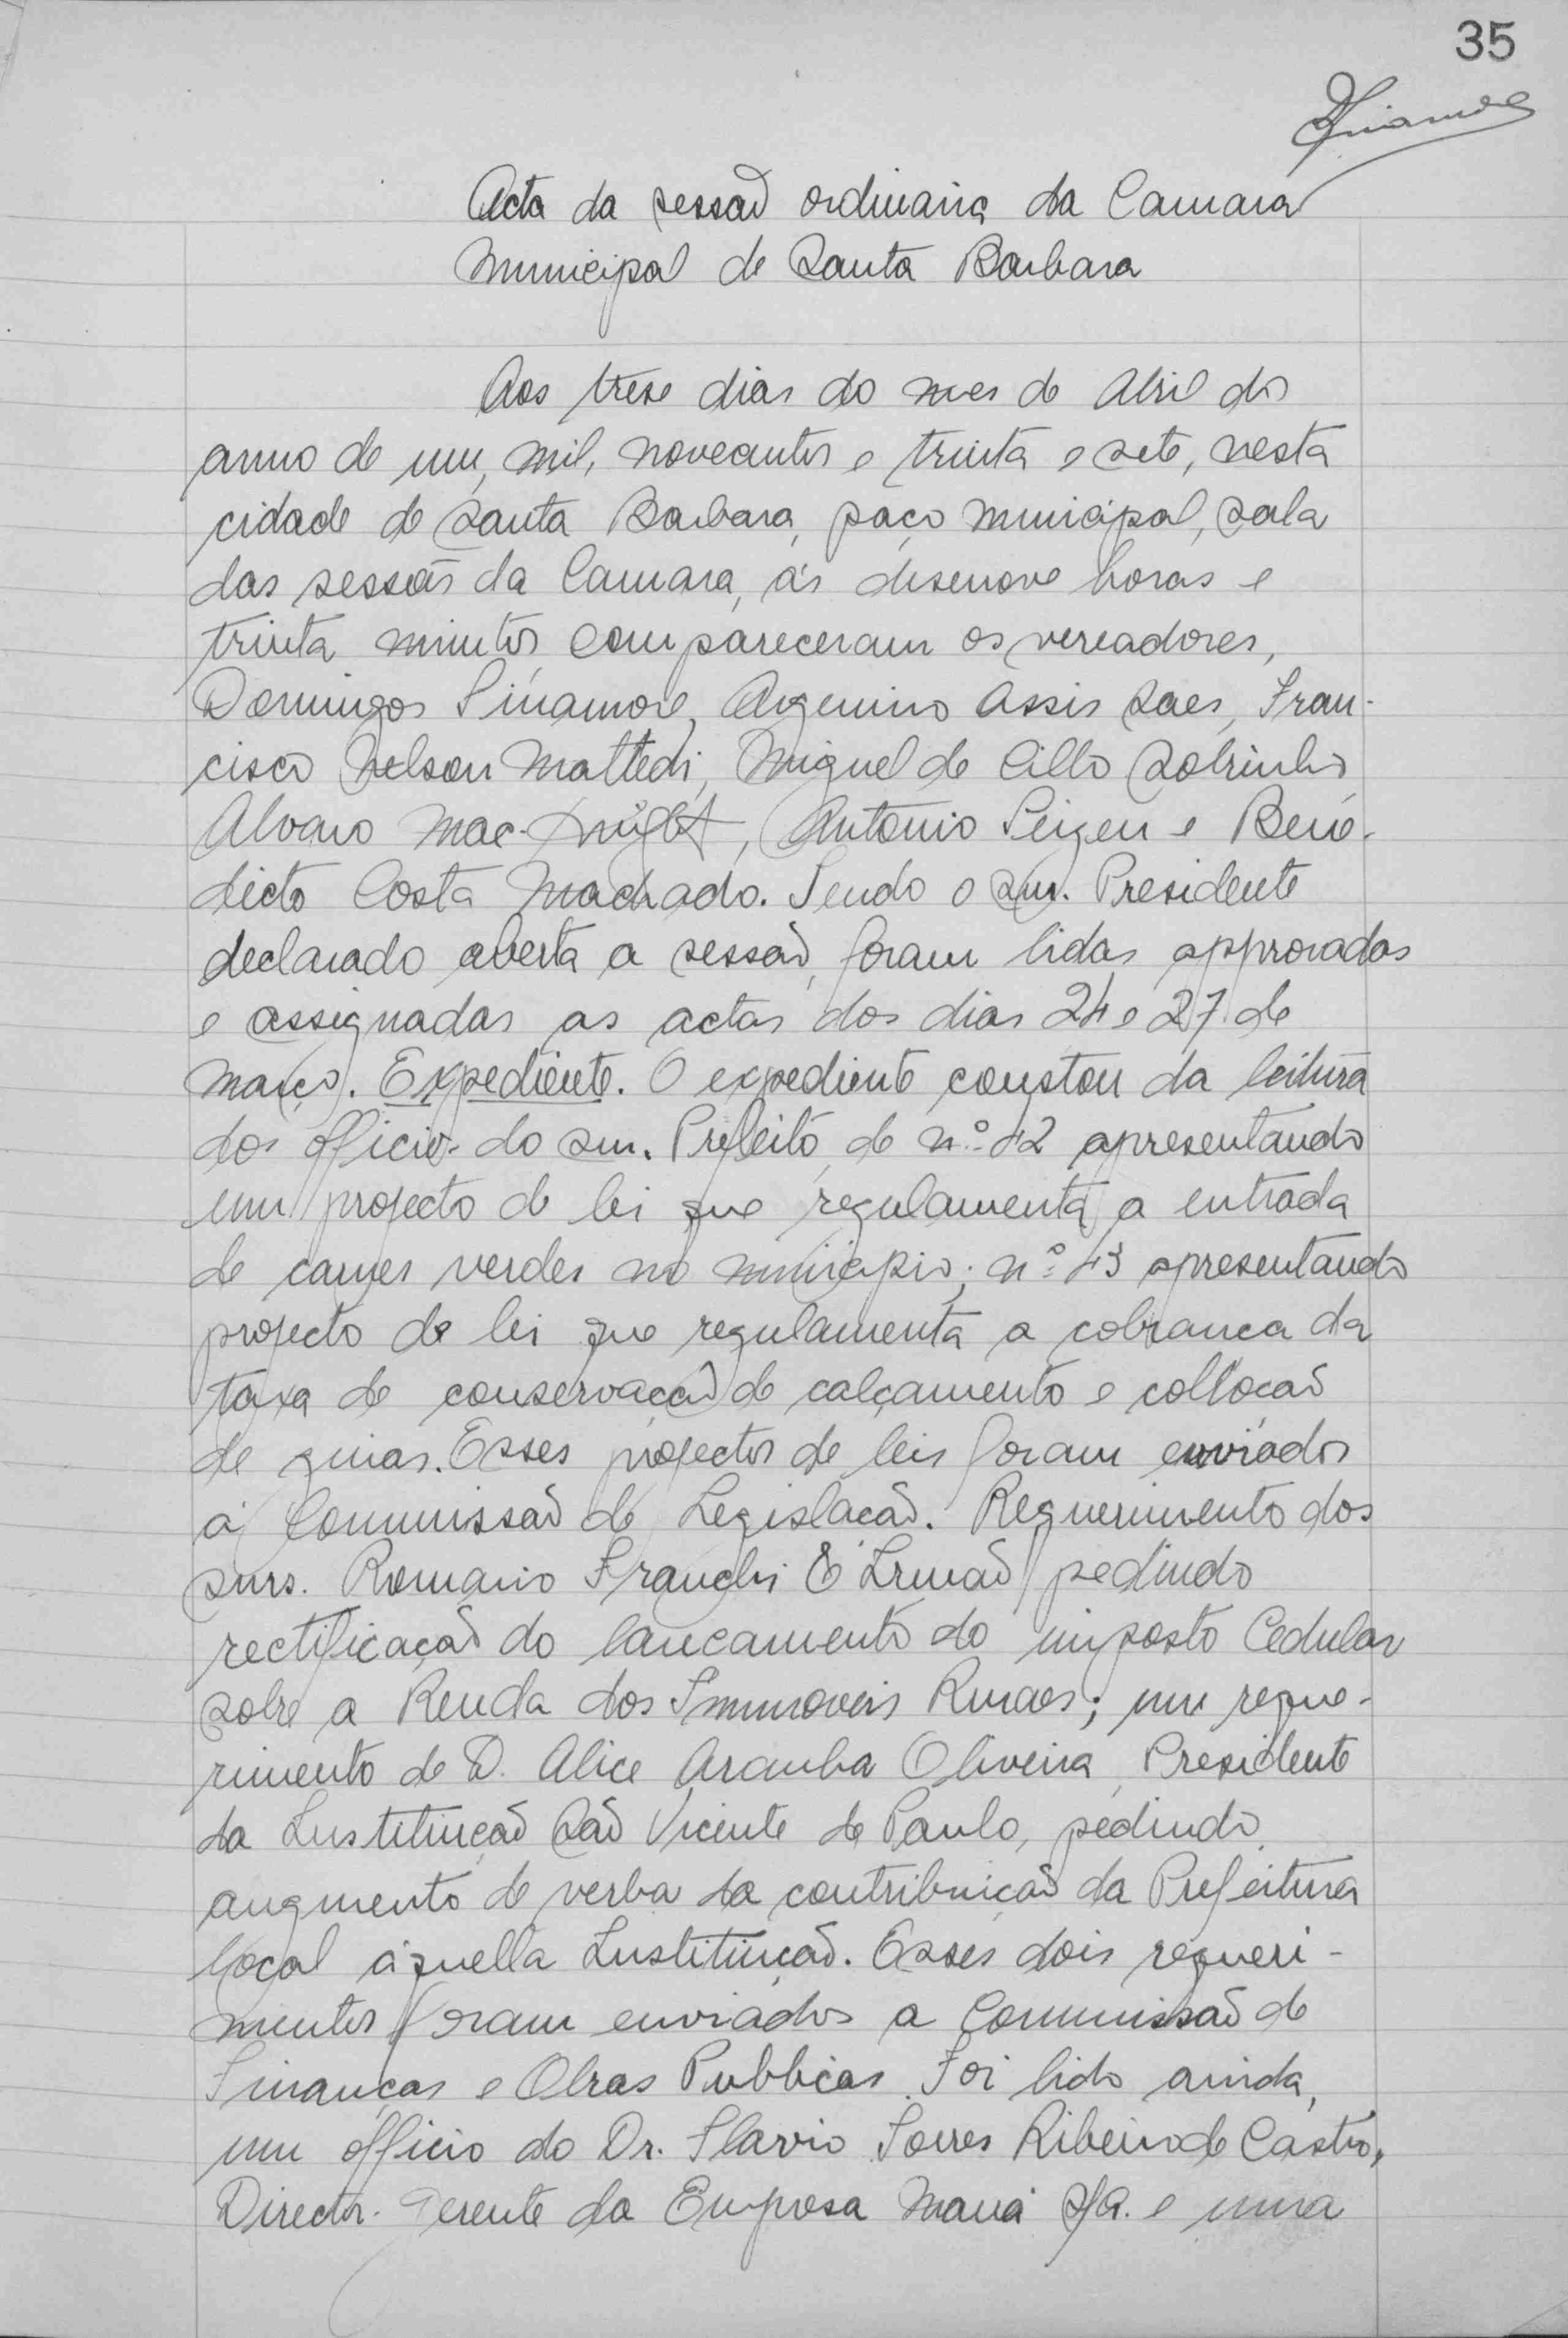 35
DFinamore
Acta da sessaõ ordinaria da Camara
Municipal de Santa Barbara
Aos trese dias do mes de Abril do
anno de um, mil, novecentos e trinta e sete, nesta
cidade de Santa Barbara, paço Municipal, sala
das sessoẽs da Camara, ás desenove horas e
trinta minutos compareceram os vereadores,
Domingos Finamore, Argemiro Assis Saes, Fran-
cisco Nelson Mattedi, Miguel de Cillo Sobrinho,
Alvaro Mac-Knight, Antonio Peizen e Bene-
dicto Costa Machado. Tendo o snr. Presidente
declarado aberta a sessaõ, foram lidas approvadas
e assignadas as actas dos dias 24 e 27 de
março. Expediente. O expediente constou da leitura
dos officios do snr. Prefeito, de n.º 42 apresentando
um projecto de lei que regulamenta a entrada
de carnes verdes no municipio; n.º 43 apresentando
projecto de lei que regulamenta a cobranca da
taxa de conservaçaõ de calçamento e collocaõ
de guias. Esses projectos de leis foram enviados
á Commissaõ de Legislaçaõ. Requerimento dos
snrs. Romano Franchi & Irmaõ pedindo
rectificaçaõ do lancamento do imposto Cedular
sobre a Renda dos Immoveis Ruraes; um reque-
rimento de D. Alice Aranha Oliveira, Presidente
da Instituiçaõ Saõ Vicente de Paulo, pedindo
augmento de verba da contribuiçaõ da Prefeitura
local áquella Instituiçaõ. Esses dois requeri-
mentos foram enviados a Commissaõ de
Finanças e Obras Publicas. Foi lido ainda,
um officio do Dr. Flavio Torres Ribeiro de Castro,
Director-Gerente da Empresa Mauá S/A. e uma